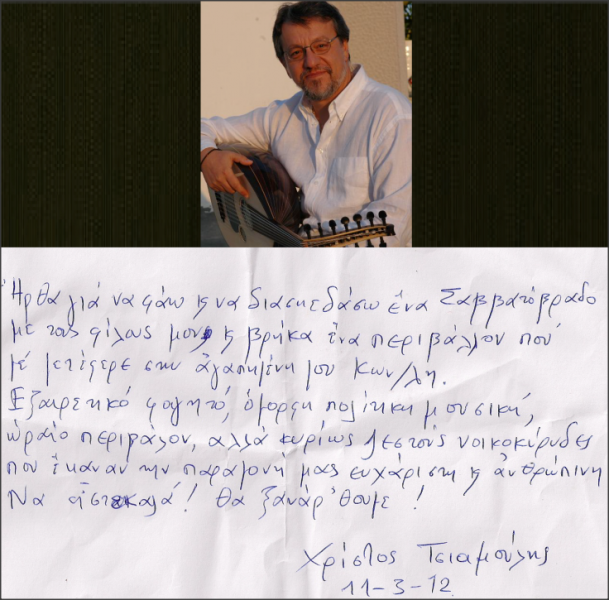 Ἦρθα γιά νά φάω κ να διασκεδάσω ἕνα Σαββατόβραδο
με τους φίλους μου κ βρήκα ἕνα περιβάλλον πού
μέ μετέφερε στην ἀγαπημένη μου Κων/λη.
Εξαιρετικό φαγητό, όμορφη πολίτικη μουσική,
ὡραίο περιβάλον, αλλά κυρίως ζεστούς νοικοκύρηδες
που ἔκαναν την παραμονή μας ευχάριστη κ ἀνθρώπινη
Να εἶστε καλά! Θα ξανάρθουμε!
Χρίστος Τσιαμούλης
11-3-12